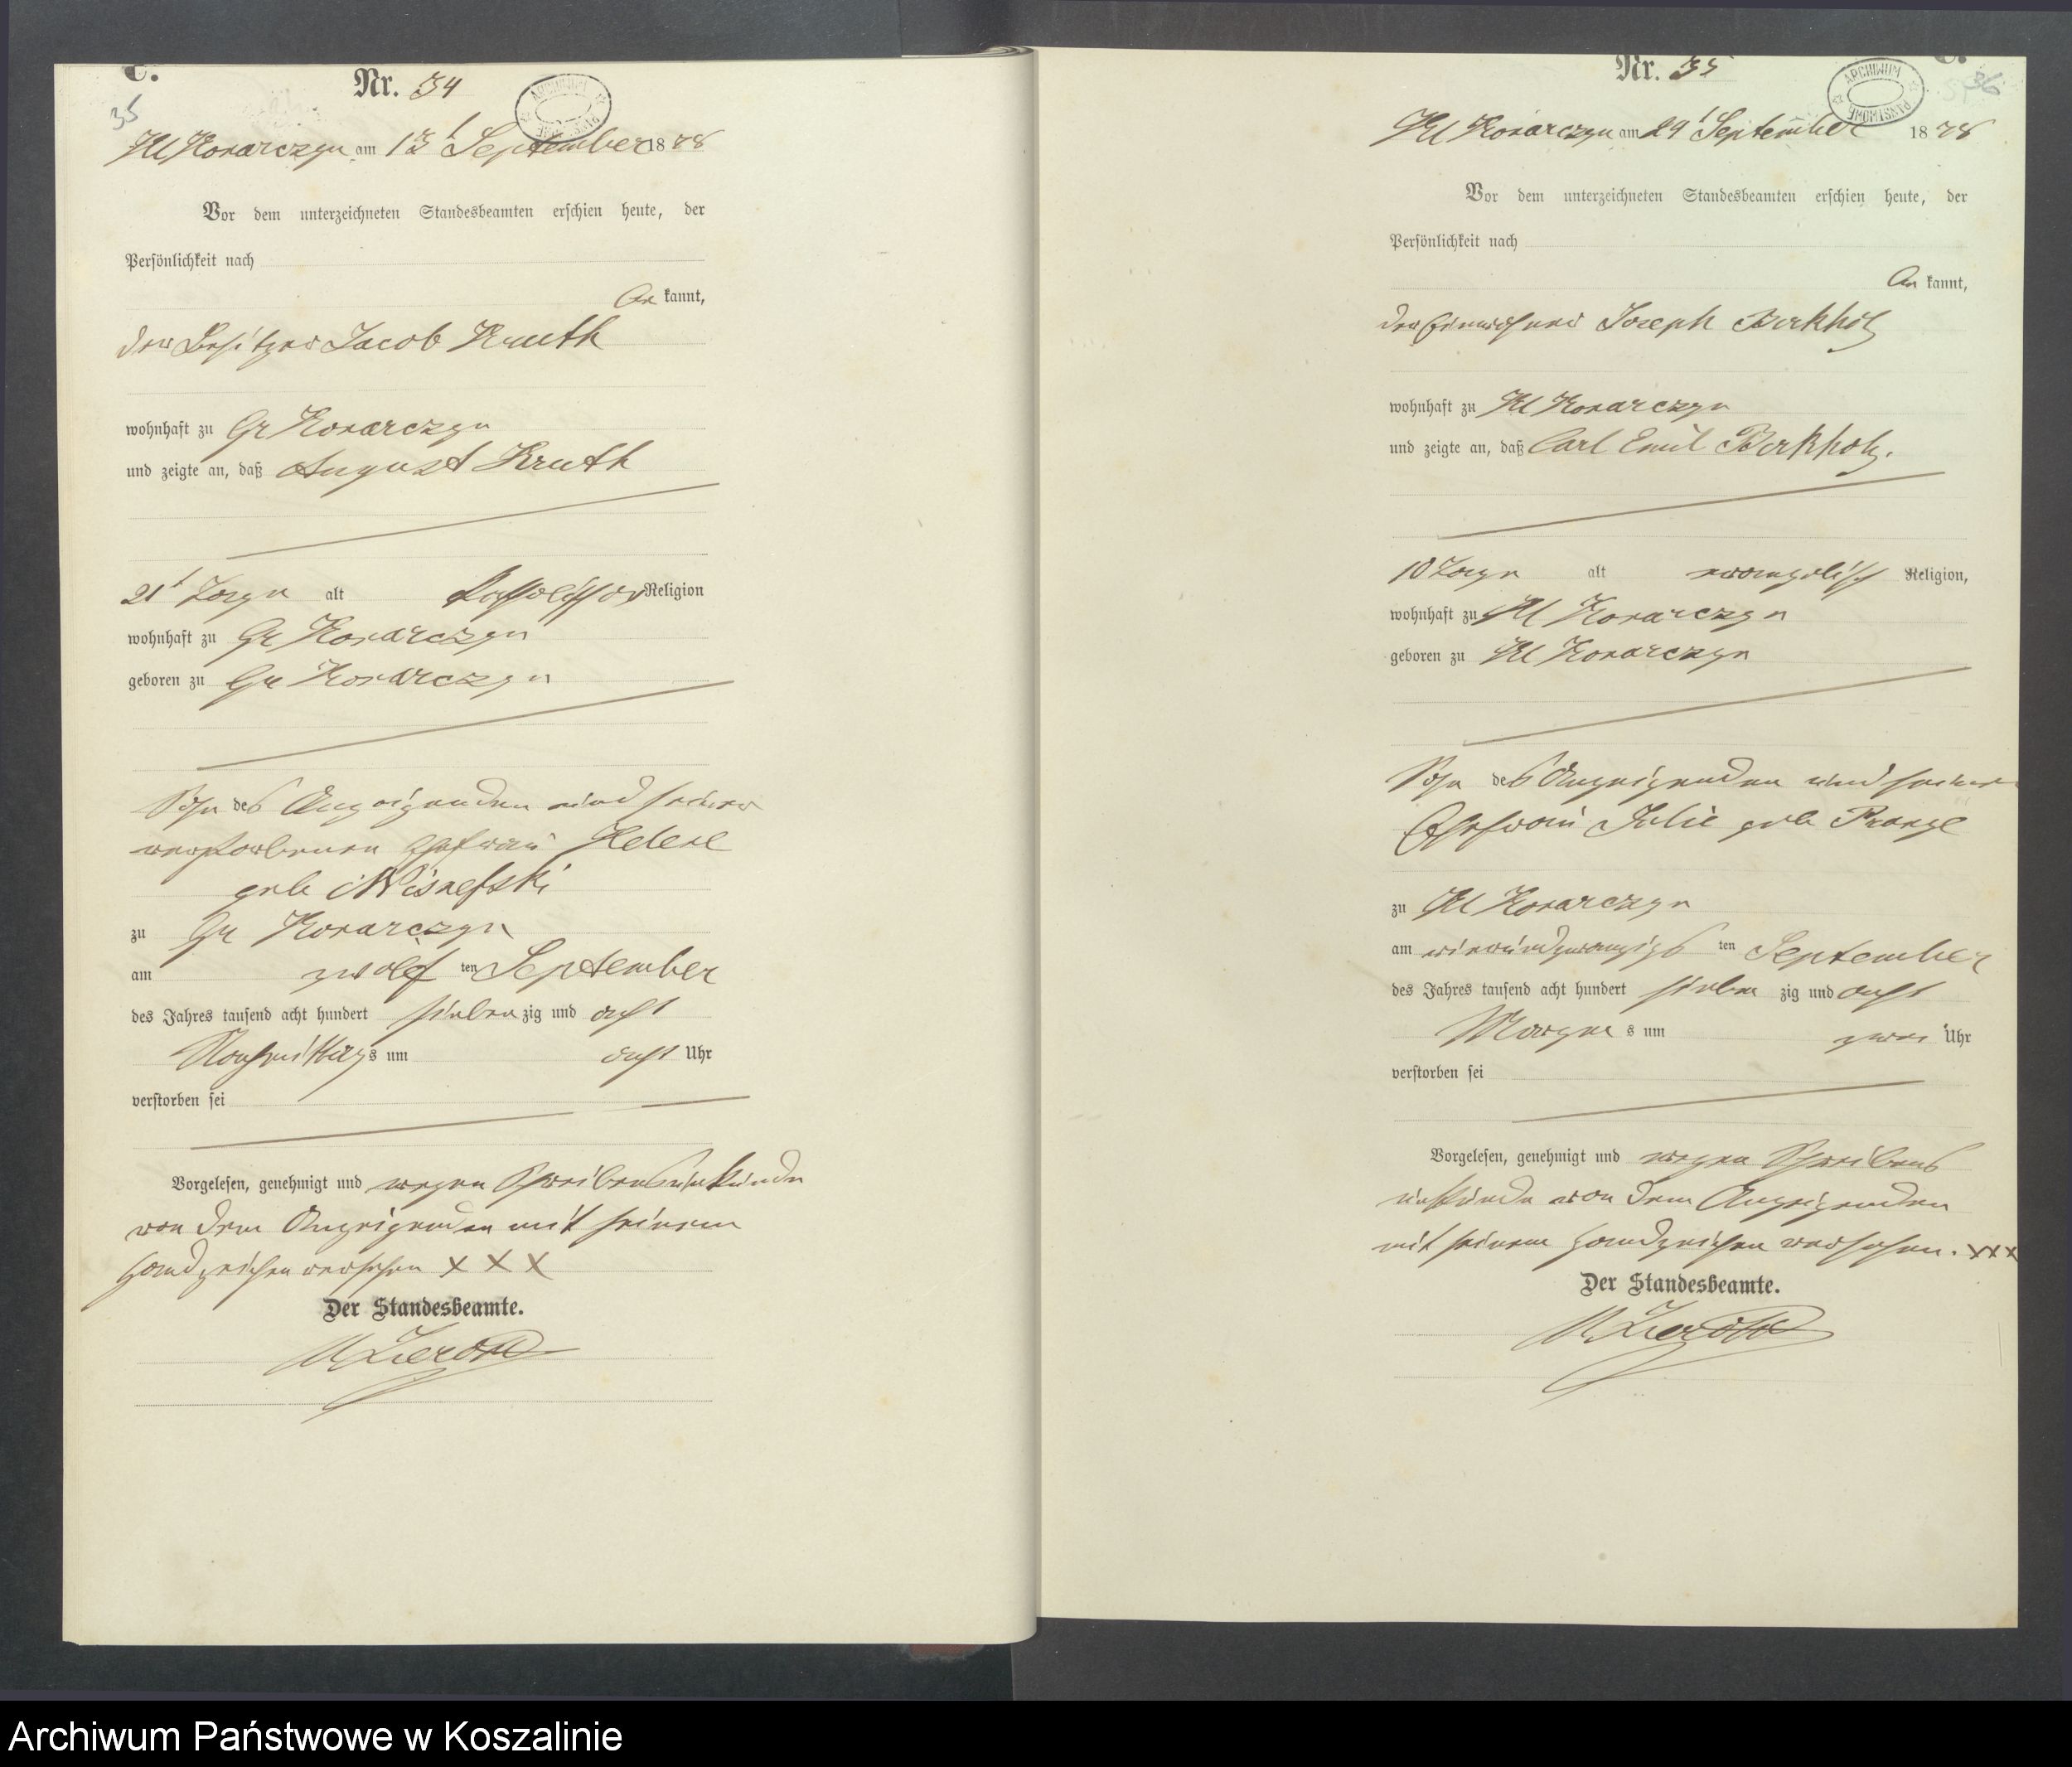 Nr. 34
35
Kl Konarczyn am 13t September 1878
Vor dem unterzeichneten Standesbeamten erschien heute, der
Persönlichkeit nach
kannt,
der Besitzer Jacob Kruth
wohnhaft zu Gr Konarczyn
und zeigte an, daß August Kruth
21 alt katholischer Religion
wohnhaft zu Gr Konarczyn
geboren zu Gr Konarczyn
Sohn des Anzeigenden und seiner
verstorbenen Ehefrau Helene
geb Wisnefski
zu Gr Konarczyn
am zwölf ten September
des Jahres tausend acht hundert sieben zig und acht
Nachmittags um acht Uhr
verstorben sei
Vorgelesen, genehmigt und wegen Schreibensunkunde
von dem Anzeigenden mit seinem
Handzeichen versehen XXX
Der Standesbeamte.
Nr. 35
36
ARCHIWUM PAŃSTWOWE
Kl Konarczyn am 24t September 1878
Vor dem unterzeichneten Standesbeamten erschien heute, der
Persönlichkeit nach
kannt,
der Einwohner Joseph Birkholz
wohnhaft zu Kl Konarczyn
und zeigte an, daß Carl Emil Birkholz.
10 alt evangelisch Religion,
wohnhaft zu Kl Konarczyn
geboren zu Kl Konarczyn
Sohn des Anzeigenden und seiner
Ehefrau Julie geb Prange
zu Kl Konarczyn
am vierundzwanzigs ten September
des Jahres tausend acht hundert sieben zig und acht
Morgens um zwei Uhr
verstorben sei
Vorgelesen, genehmigt und wegen Schreibens
unkunde von dem Anzeigenden
mit seinem Handzeichen versehen. XXX
Der Standesbeamte.
Archiwum Państwowe w Koszalinie